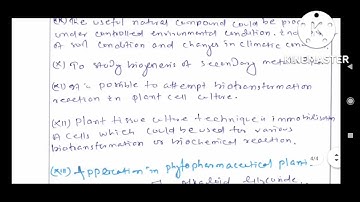 (IX) The useful natural compound could be pro
under controlled environmental condition. Ind
of soil condition and changes in climatic con
(X) To study biogenesis of secondary met
(XI) It is possible to attempt biotransformation
reaction in plant cell culture.
(XII) Plant tissue culture technique is immobilisa
of cells which could be used for various
biotransformation or biochemical reaction.
(XIII) Application in phytopharmaceutical plant.
alkaloid, glycoside,
KINEMASTER